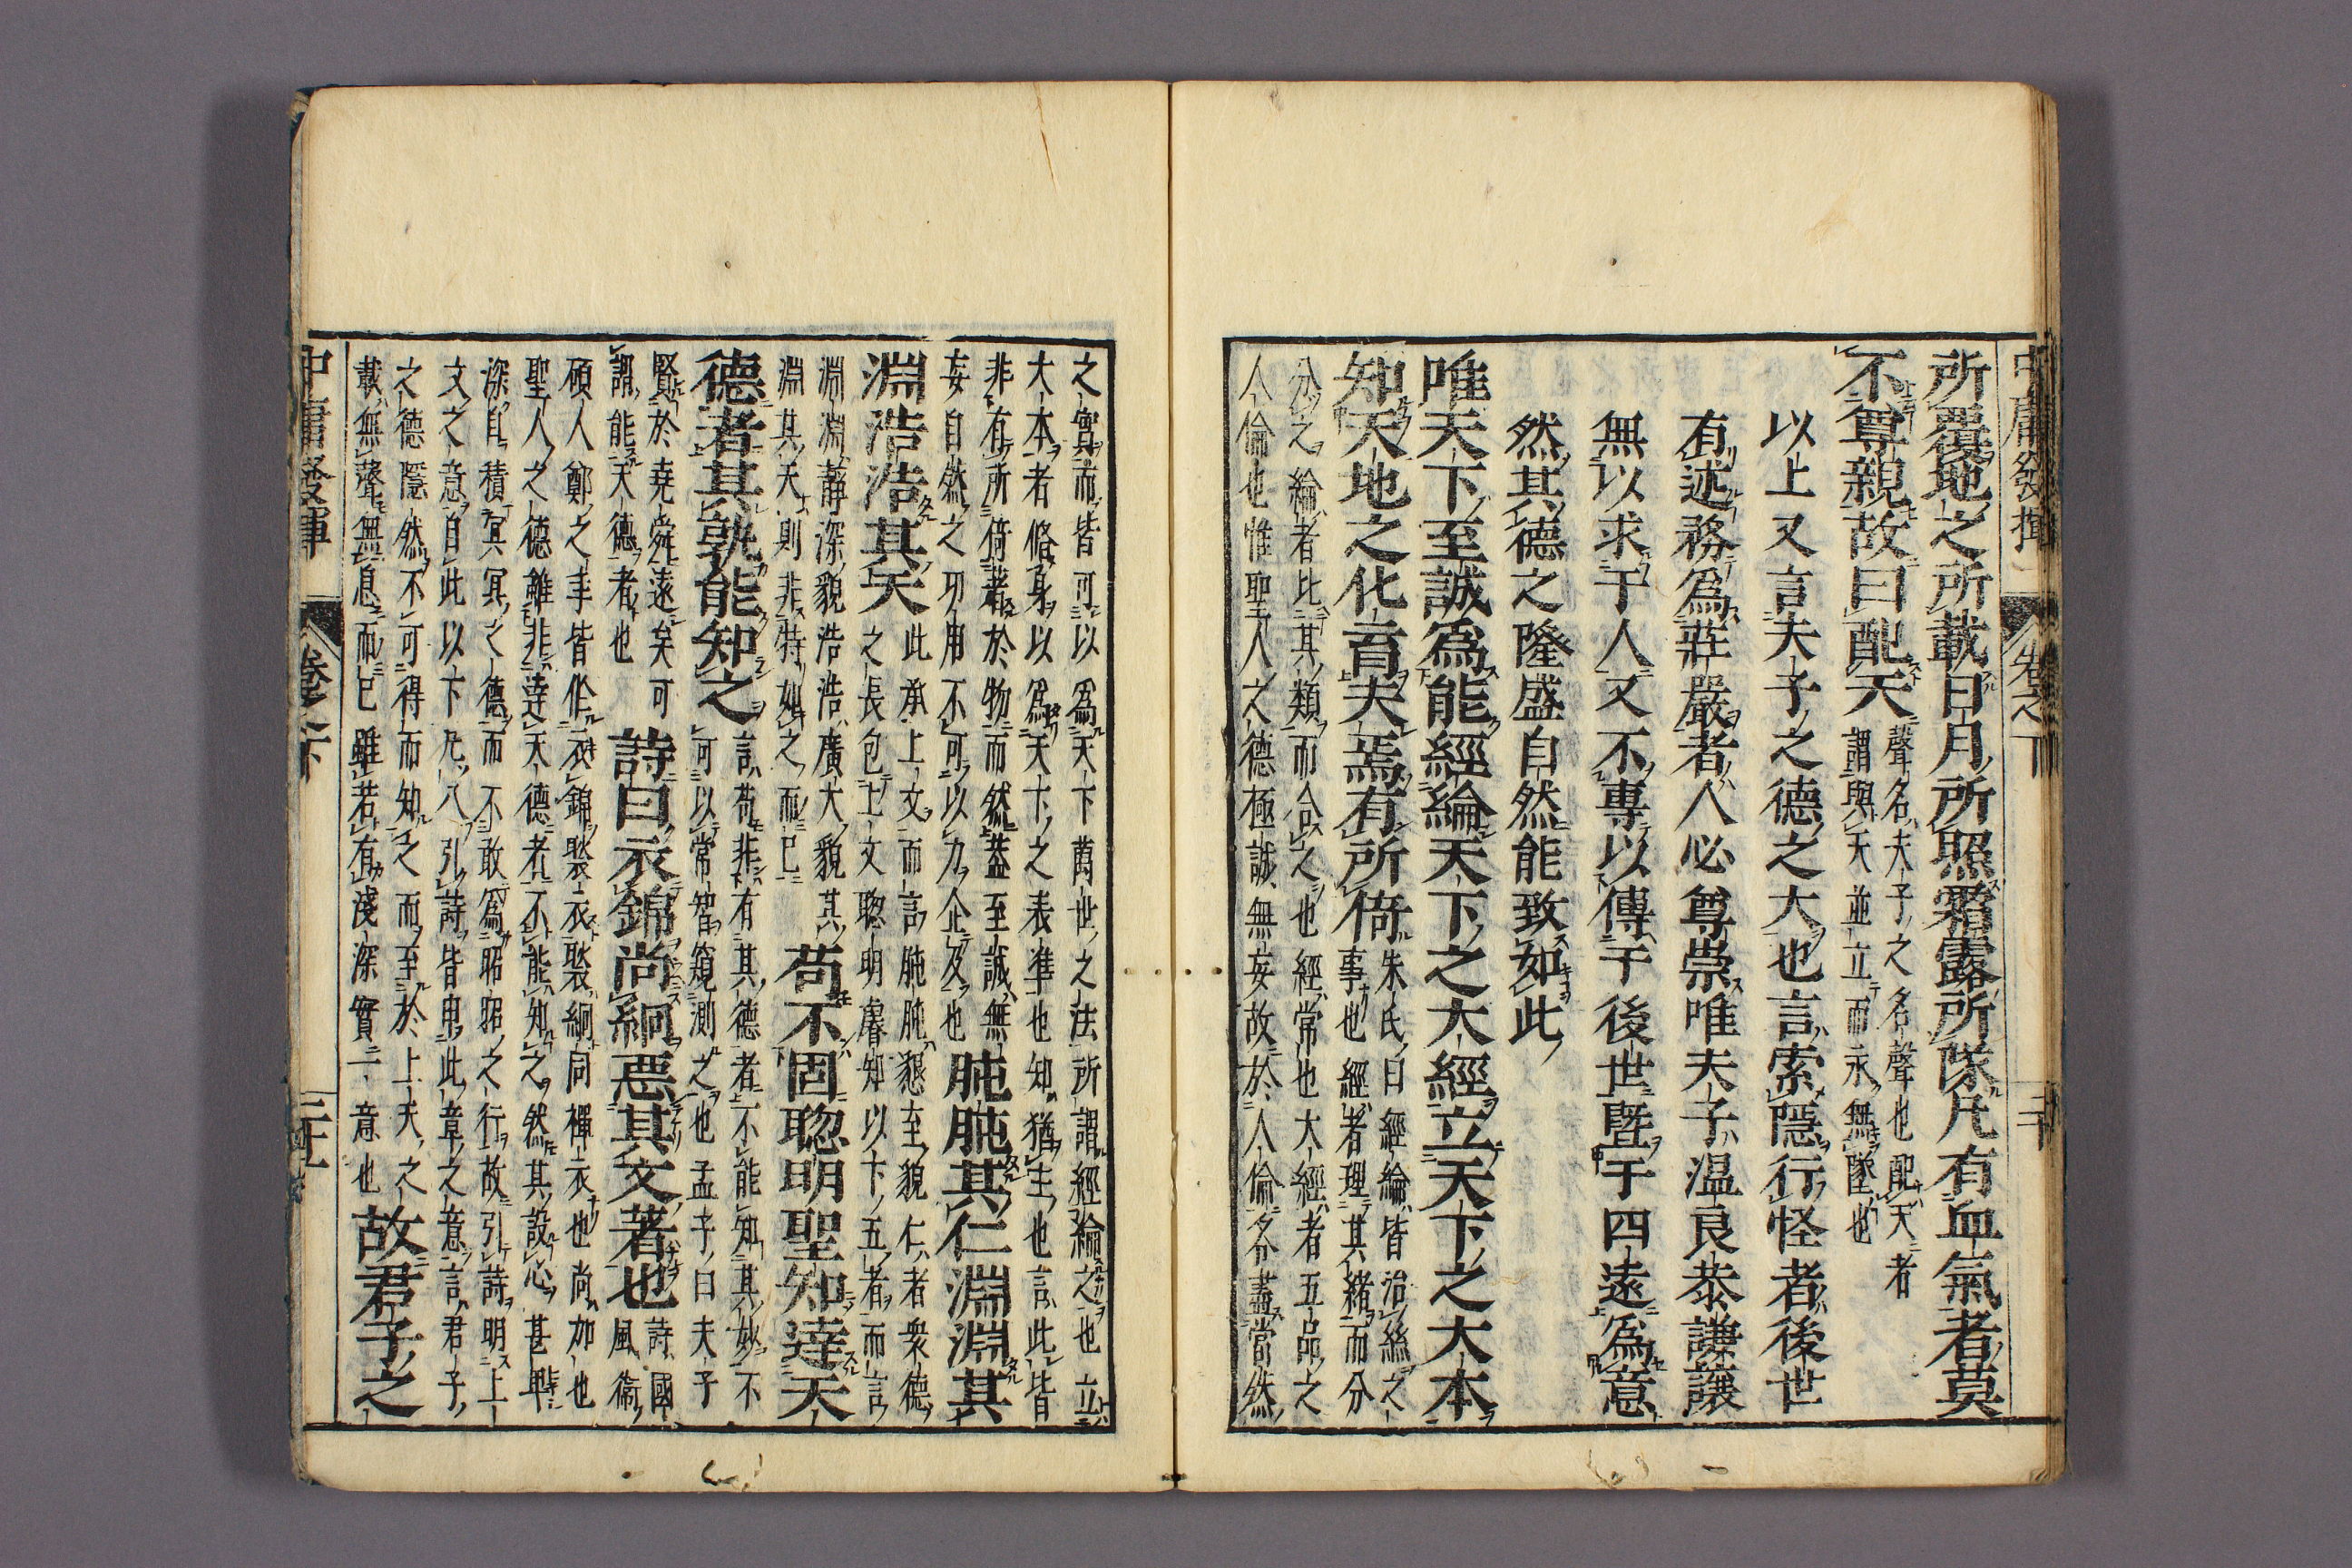 中庸發揮 卷之下 二十
所覆地之所載日月所照霜露所隊凡有血氣者莫
不尊親故曰配天
聲名夫子之名聲也配天者
謂與天並立而永無墜也
以上又言夫子之德之大也言索隱行怪者後世
有述務爲莊嚴者人必尊崇唯夫子温良恭謙讓
無以求于人又不專以傳于後世曁于四遠爲意
然其德之隆盛自然能致如此
唯天下至誠爲能經綸天下之大經立天下之大本
知天地之化育夫焉有所倚
朱氏曰經綸皆治絲之
事也經者理其緒而分
分之綸者比其類而合之也經常也大經者五品之
人倫也惟聖人之德極誠無妄故於人倫各盡當然
之實而皆可以爲天下萬世之法所謂經綸之也立
大本者脩身以爲天下之表準也知猶主也言此皆
非有所倚著於物而然蓋至誠無
妄自然之功用不可以力企及也
肫肫其仁淵淵其
淵浩浩其天
此承上文而言肫肫懇至貌仁者衆德
之長包上文聰明睿知以下五者而言
淵淵靜深貌浩浩廣大貌其
淵其天則非特如之而已
苟不固聰明聖知達天
德者其孰能知之
言苟非有其德者不能知其妙不
可以常智窺測之也孟子曰夫子
賢於堯舜遠矣可
謂能天德者也
詩曰衣錦尚絅惡其文著也
詩國
風衛
碩人鄭之丰皆作衣錦褧衣褧絅同襌衣也尚加也
聖人之德雖非達天德者不能知之然其設心甚卑
深自積冥冥之德而不敢爲昭昭之行故引詩明上
文之意自此以下凡八引詩皆申此章之意言君子
之德隱然不可得而知之而至於上天之
載無聲無息而已雖若有淺深實一意也
故君子之
中庸發揮 卷之下 二十一